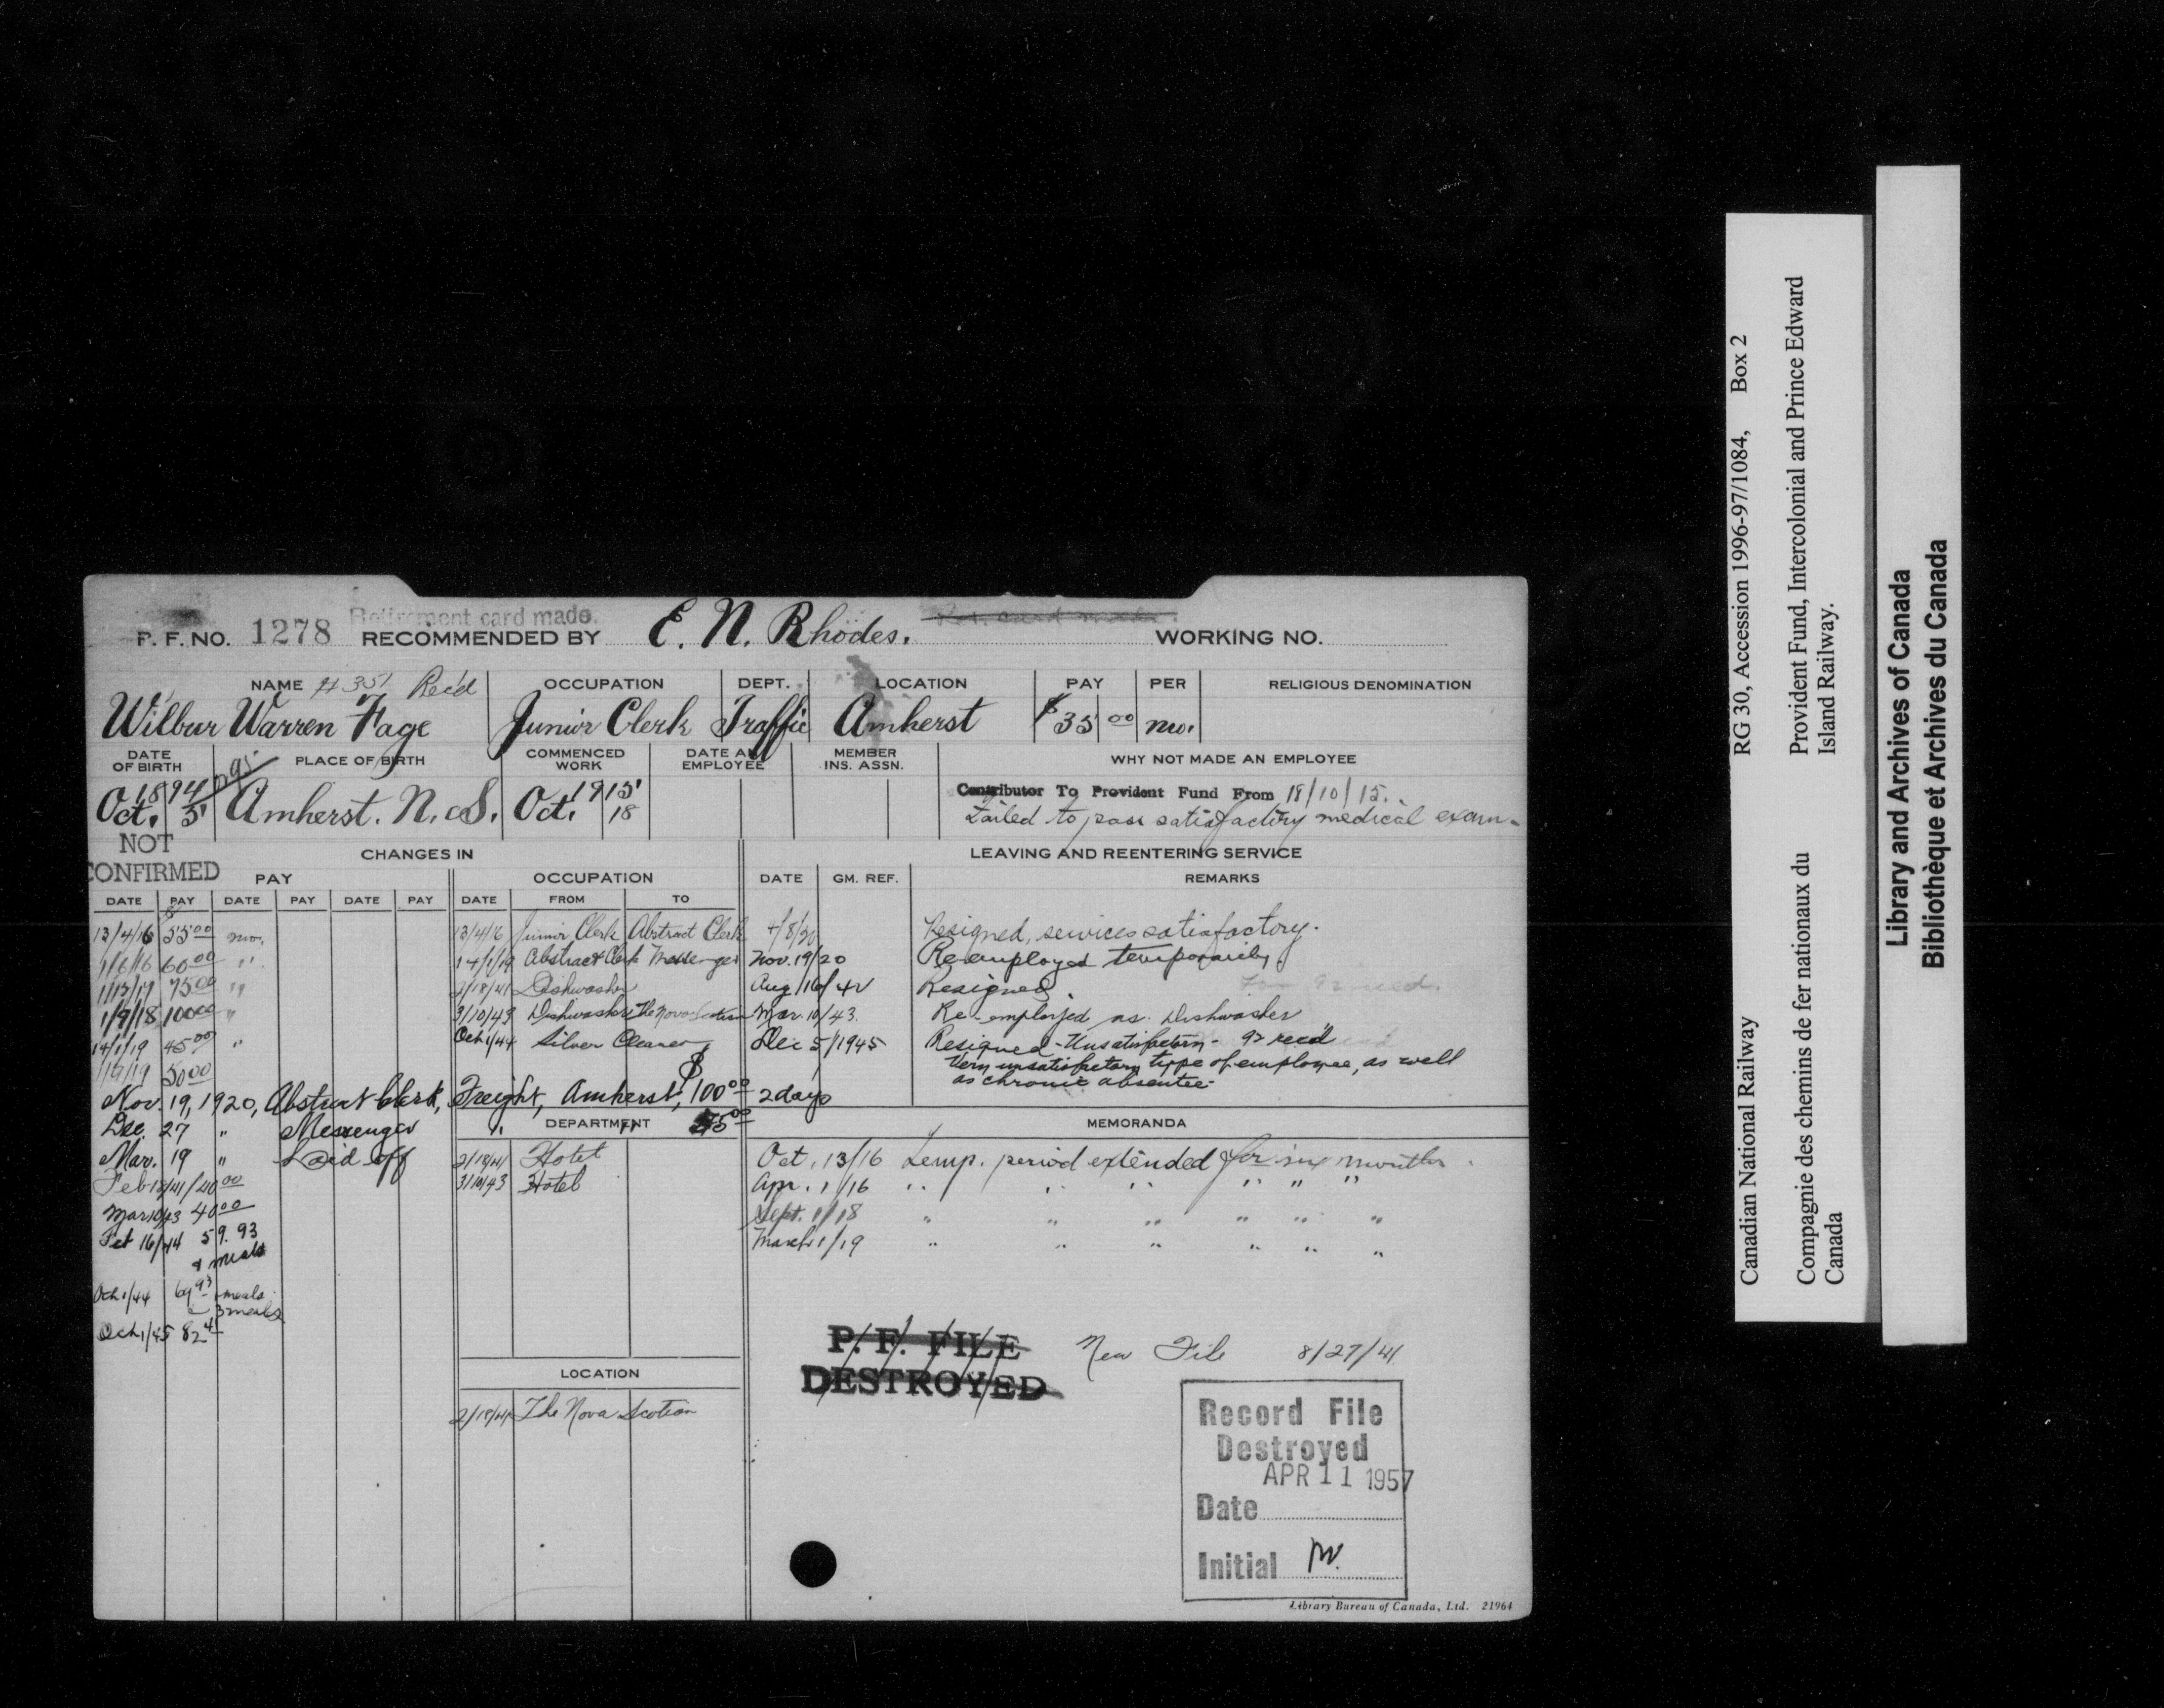 Retirement card made.
P. F. NO. 1278 RECOMMENDED BY E. N. Rhodes. WORKING NO.
NAME # 351 Rec'd OCCUPATION DEPT. LOCATION PAY PER RELIGIOUS DENOMINATION
Wilbur Warren Fage Junior Clerk Traffic Amherst $35 00 mo.
DATE OF BIRTH PLACE OF BIRTH COMMENCED WORK DATE AN EMPLOYEE MEMBER INS. ASSN. WHY NOT MADE AN EMPLOYEE
1894 1915 Contributor To Provident Fund From 18/10/15.
Oct. 5 Amherst. N. S. Oct. 18 Failed to pass satisfactory medical exam-
NOT CONFIRMED
CHANGES IN LEAVING AND REENTERING SERVICE
PAY OCCUPATION DATE GM. REF. REMARKS
DATE PAY DATE PAY DATE PAY DATE FROM TO
13/4/16 55 00 mo. 13/4/16 Junior Clerk Abstract Clerk 4/8/20 Resigned, services satisfactory.
1/6/16 60 00 " 14/1/19 Abstract Clerk Messenger Nov. 19/20 Re-employed temporarily
75 00 " 2/18/41 Dishwasher Aug 16/42 Resigned.
1/9/18 100 00 " 3/10/43 Dishwasher The Nova Scotian Mar. 10/43. Re-employed as Dishwasher
14/1/19 45 00 " Oct 1/44 Silver Cleaner Dec 5/1945 Resigned - Unsatisfactory - 92 rec'd
50 00 Very unsatisfactory type of employee, as well
as chronic absentee-
Nov. 19, 1920, Abstract Clerk, Freight, Amherst, $100 00 2 days
Dec. 27 " Messenger " " 75 00
DEPARTMENT MEMORANDA
Mar. 19 " Laid off 2/18/41 Hotel Oct. 13/16 Temp. period extended for six months.
Feb 18/41 40 00 3/10/43 Hotel Apr. 1/16 " " " " " "
Mar 10/43 40 00 Sept. 1/18 " " " " " "
Feb 16/44 59.93 March 1/19 " " " " " "
& meals
Oct 1/44 69 93 meals
3 meals
Oct 1/45 82
P. F. FILE
DESTROYED
New File 8/27/41
LOCATION
2/18/41 The Nova Scotian
Record File
Destroyed
APR 11 1957
Date
Initial
Library Bureau of Canada, Ltd. 21964
RG 30, Accession 1996-97/1084, Box 2
Canadian National Railway
Provident Fund, Intercolonial and Prince Edward
Island Railway.
Compagnie des chemins de fer nationaux du
Canada
Library and Archives of Canada
Bibliothèque et Archives du Canada